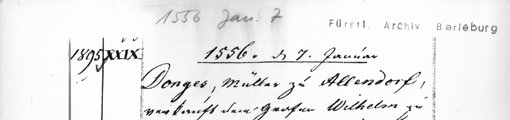 1556 Jan. 7
Fürstl. Archiv Berleburg
1895 XXIX
1556. d 7. Januar
Donges, Müller zu Allendorf,
verkauft dem Grafen Wilhelm zu